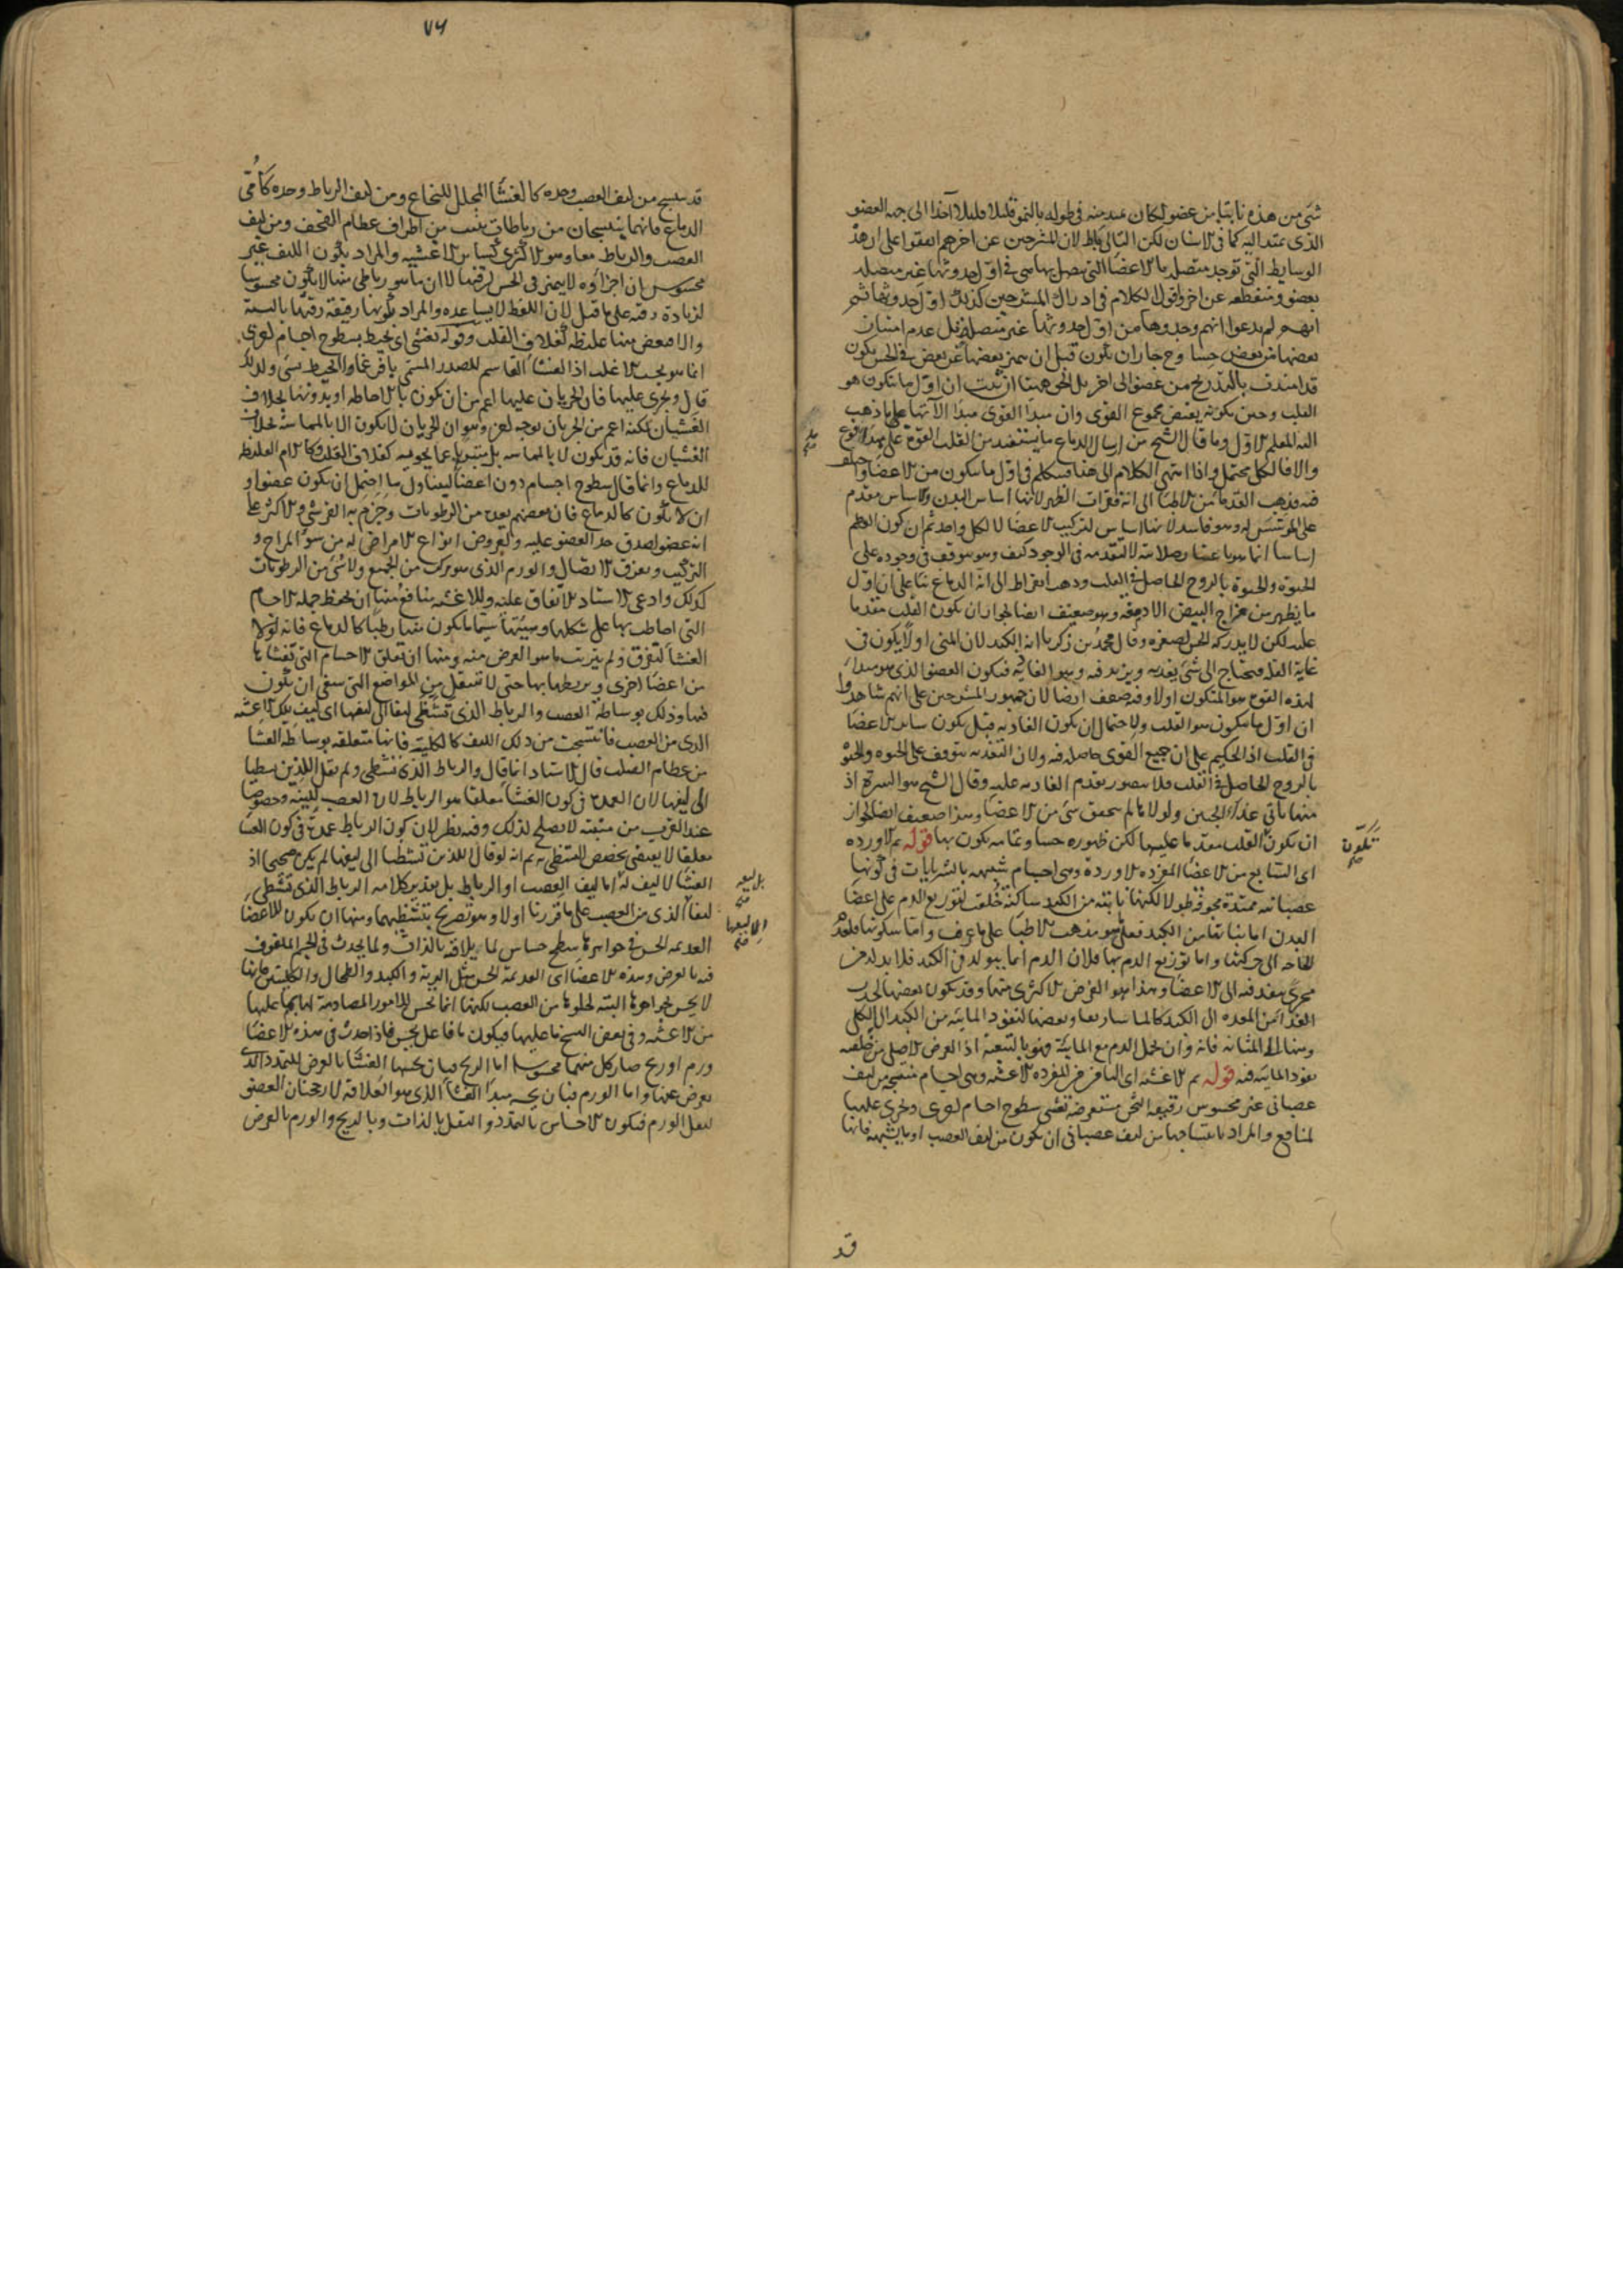 شئ من هذه نابتا من عضو لكان عند منبته فى طوله بالنمو قليلا قليلا آخذا الى جهة العضو
الذى يمتد اليه كما فى الاسنان لكن التالى باطل لان المشرحين عن اخرهم اتفقوا على ان هذه
الوسايط التى توجد متصلة بالاعضا التى يتصل بها هى فى اول حدوثها غير متصلة
بعضو ومنقطعة عن اخر واقول الكلام فى ادراك المشرحين كذلك اول حدوثها ثم
انهم لم يدعوا انهم وجدوها من اول حدوثها غير متصلة بل عدم امتياز
بعضها من بعض حسا وح جاز ان يكون قبل ان يتميز بعضها عن بعض فى الحس يكون
قد امتدت بالتدريج من عضو الى اخر بل الحق هيهنا ان ثبت ان اول ما يتكون هو
القلب وحين يكونه يفيض مجموع القوى وان مبدأ القوى مبدأ الآتها على ما ذهب
اليه المعلم الاول وما قال الشيخ من ارسال الدماغ ما يستفيد من القلب القوة على
والا فالكل محتمل واذا انتهى الكلام الى هنا فنتكلم فى اول ما يتكون من الاعضا واختلفوا
فيه فذهب القدما من الاطبا الى انه فقرات الظهر لانها اساس البدن والاساس مقدم
على المؤسس له وهو فاسد لانها اساس لتركيب الاعضا لا لكل واحد ثم ان كون العظم
اساسا انما هو باعتبار صلابته لا لتقدمه فى الوجود كيف وهو موقوف فى وجوده على
الحيوة والحيوة بالروح الحاصل فى القلب وذهب ابقراط الى انه الدماغ بنا على ان اول
ما يظهر من فراخ البيض الادمغة وهو ضعيف ايضا لجواز ان يكون القلب متقدما
عليه لكن لا يدركه الحس لصغره وقال محمد بن زكريا انه الكبد لان المنى اولا يكون فى
غاية القلة فيحتاج الى شئ يغذيه ويزيد فيه وهو الغاذية فيكون العضو الذى هو مبدأ
لهذه القوة هو المتكون اولا وفيه ضعف ايضا لان جمهور المشرحين على انهم شاهدوا
ان اول ما يتكون هو القلب ولاحتمال ان يكون الغاذية قبل تكون ساير الاعضا
فى القلب اذ الحكيم على ان جميع القوى حاصلة فيه ولان التغذية يتوقف على الحيوه والحيوة
بالروح الحاصل فى القلب فلا يتصور تقدم الغاذية عليه وقال الشيخ هو السرة اذ
منها ياتى غذاء الجنين ولولاها لم يتحقق شئ من الاعضا وهذا ضعيف ايضا لجواز
ان يكون القلب متقدما عليها لكن ظهوره حسا وتمامه يكون بها قوله ثم الاورده
اى التاسع من الاعضا المفرده الاوردة وهى اجسام شبيهه بالشريانات فى كونها
عصبانيه ممتدة مجوفة طولا لكنها نابتة من الكبد ساكنة خلقت لتوزيع الدم على اعضا
البدن اما نباتها من الكبد فعلى هو مذهب الاطبا على ما عرف واما سكونها فلعدم
الحاجه الى حركتها واما توزيع الدم بها فلان الدم انما يتولد فى الكبد فلا بد له من
مجرى ينفذ فيه الى الاعضا وهذا هو الغرض الاكثرى منها وقد يكون بعضها لجذب
الغذا من المعده الى الكبد كالماساريقا وبعضها لنفوذ المايية من الكبد الى الكلى
ومنها الى المثانه فانه وان حمل الدم مع المايية فهو بالتبعية اذ الغرض الاصلى من خلقه
نفوذ المايية فيه قوله ثم الاغشيه اى العاشر من المفرده الاغشيه وهى اجسام منتسجه من ليف
عصبانى غير محسوس رقيقة الثخن مستعرضة تغشى سطوح اجسام اخرى وتجرى عليها
لمنافع والمراد بانتساجها من ليف عصبانى ان يكون من ليف العصب او ما يشبهه فانها
قد
تكون
صح
٧٦
قد ينتسج من ليف العصب وحده كالغشا المجلل للنخاع ومن ليف الرباط وحده كامى
الدماغ فانهما ينتسجان من رباطات تنبت من اطراف عظام القحف ومن ليف
العصب والرباط معا وهو الاكثرى كساير الاغشيه والمراد بكون الليف غير
محسوس ان اجزاؤه لا يتميز فى الحس لرقتها لا ان ما هو رباطى منها لا يكون محسوسا
لزيادة رقته على ما قيل لان اللفظ لا يساعده والمراد بكونها رقيقة رقتها بالنسبة
والا فبعض منها غليظة كغلاف القلب وقوله تغشى اى تحيط بسطوح اجسام اخرى
انما هو بحسب الاغلب اذ الغشا القاسم للصدر المسمى بافرغما لا يحيط بشئ ولذلك
قال ويجرى عليها فان الجريان عليها اعم من ان يكون بالاحاطه او بدونها بخلاف
الغشيان لكنه اعم من الجريان بوجه اخر وهو ان الجريان لا يكون الا بالمماسة بخلاف
الغشيان فانه قد يكون لا بالمماسه بل متبريا عما يحويه كغلاف القلب وكالام الغليظه
للدماغ وانما قال سطوح اجسام دون اعضا ليتناول ما احتمل ان يكون عضوا و
ان لا يكون كالدماغ فان بعضهم يعده من الرطوبات وجزم به القرشى والاكثر على
انه عضو لصدق حد العضو عليه ولعروض انواع الامراض له من سوء المزاج و
التركيب وتفرق الاتصال والورم الذى هو مركب من الجميع ولا شئ من الرطوبات
كذلك وادعى الاستاد الاتفاق عليه وللاغشيه منافع منها ان تحفظ جملة الاجسام
التى احاطت بها على شكلها وهيئتها سيما ما يكون منها رطبا كالدماغ فانه لولا
الغشا لتفرق ولم يترتب ما هو الغرض منه ومنها ان تعلق الاجسام التى تغشاها
من اعضا اخرى ويربطها بها حتى لا تنتقل من المواضع التى ينبغى ان تكون
فيها وذلك بوساطة العصب والرباط الذى تشظى ليفا الى ليفها اى ليف تلك الاغشيه
الذى من العصب فانتسجت من ذلك الليف كالكلية فانها متعلقه بوساطه الغشا
من عظام الصلب قال الاستاد انما قال والرباط الذى تشظى ولم يقل اللذين تشظيا
الى ليفها لان العمدة فى كون الغشا معلقا هو الرباط لان العصب للينه وخصوصا
عند القرب من منبته لا يصلح لذلك وفيه نظر لان كون الرباط عمدة فى كون الغشا
معلقا لا يقتضى تخصيص التشظى به ثم انه لو قال اللذين تشظيا الى ليفها لم يكن صحيحا اذ
الغشا لا ليف له اما ليف العصب او الرباط بل تقدير كلامه الرباط الذى تشظى
ليفا الذى من العصب على ما قررنا اولا وهو تصريح بتشظيهما ومنها ان يكون للاعضا
العديمه الحس فى جواهرها سطح حساس لما يلاقيه بالذات ولما يحدث فى الجسم الملفوف
فيه بالعرض وهذه الاعضا اى العديمة الحس مثل الرية والكبد والطحال والكليتين فانها
لا يحس بجواهرها البته لخلوها من العصب لكنها انما تحس للامور المصادمة لها بما عليها
من الاغشيه وفى بعض النسخ ما عليها فيكون ما فاعل يحس فاذا حدث فى هذه الاعضا
ورم او ريح صار كل منهما محسوسا اما الريح فبان يحسها الغشا بالعرض للتمدد الذى
يعرض عنها واما الورم فبان يحسه مبدأ الغشا الذى هو العلاقة لارجحنان العضو
لثقل الورم فيكون الاحساس بالتمدد والثقل بالذات وبالريح والورم بالعرض